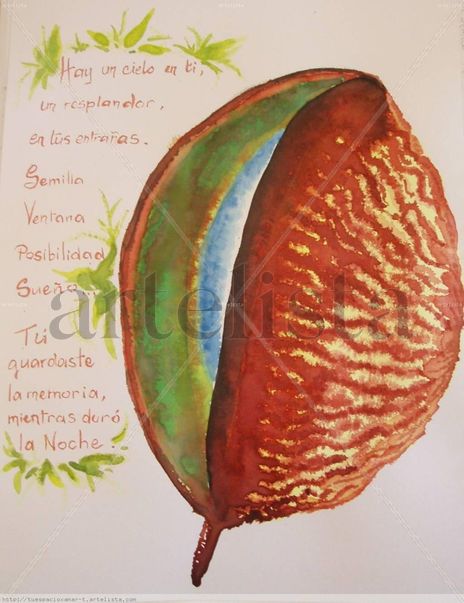 Hay un cielo en ti,
un resplandor,
en tus entrañas.
Semilla
Ventana
Posibilidad
Sueño...
Tú
guardaste
la memoria,
mientras duró
la Noche.
artelista
http://tuespacioxamar-t.artelista.com